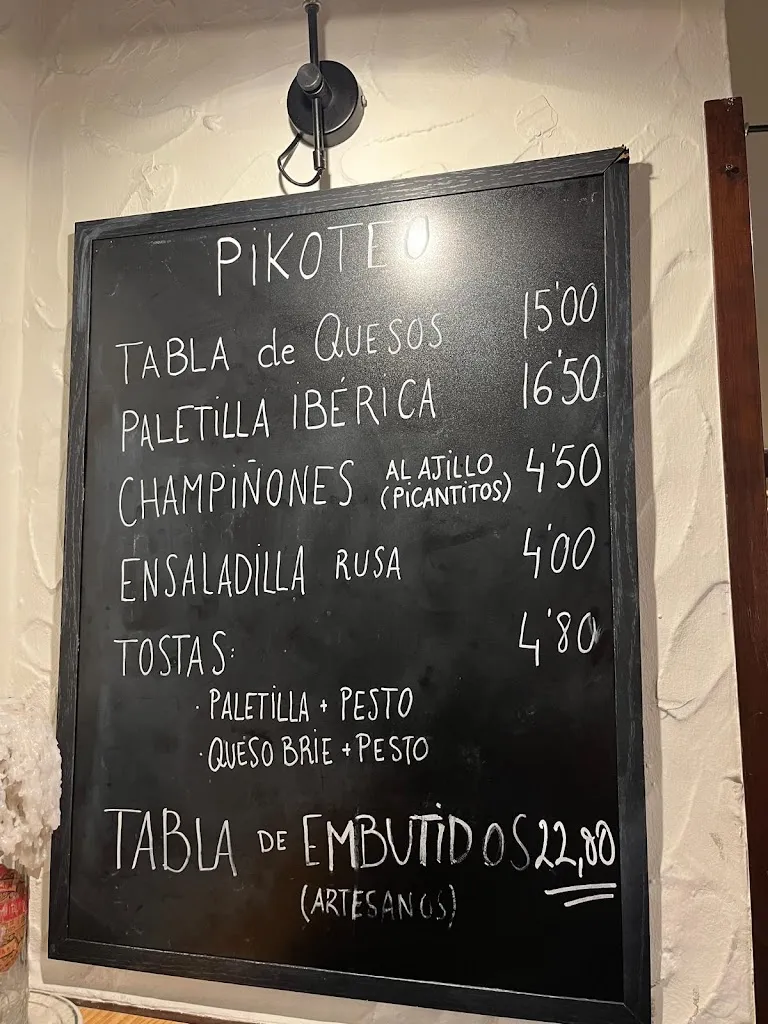 PiKOTEO
TABLA de QUESOS 15'00
PALETiLLA iBÉRiCA 16'50
CHAMPiÑONES AL AJiLLO (PiCANTiTOS) 4'50
ENSALADiLLA RUSA 4'00
TOSTAS: 4'80
· PALETiLLA + PESTO
· QUESO BRiE + PESTO
TABLA DE EMBUTiDOS 22,80
(ARTESANOS)